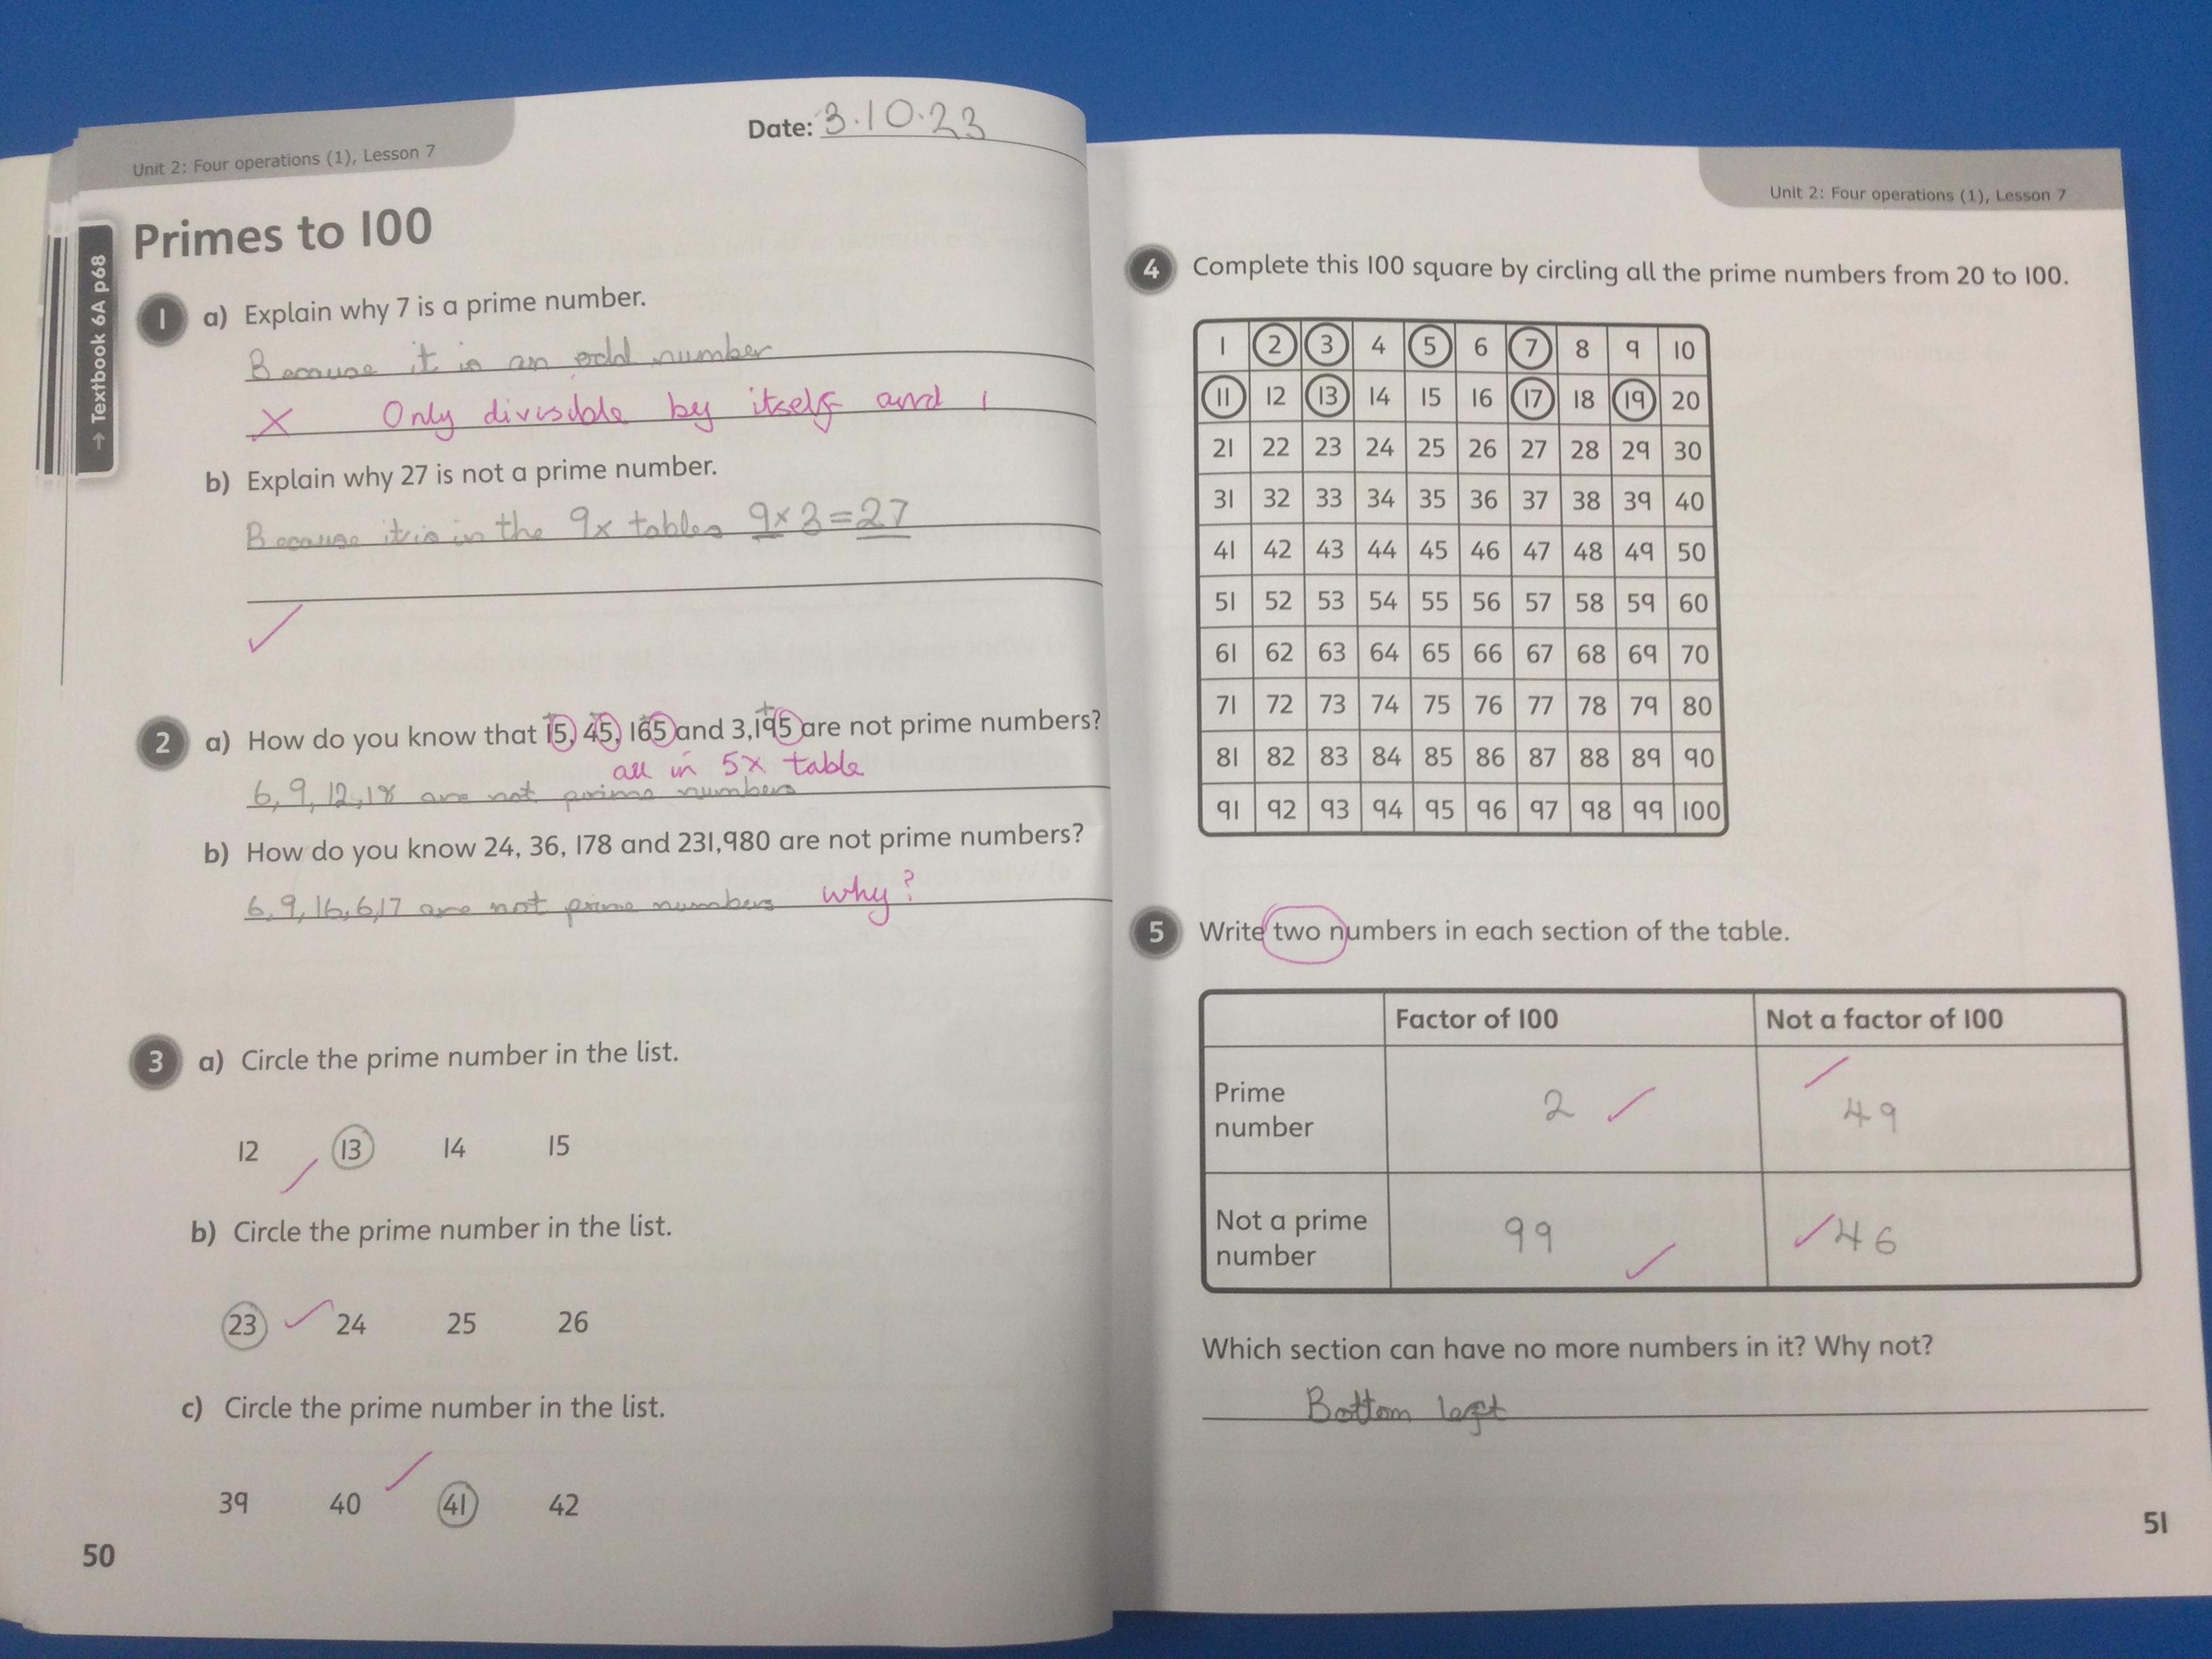 Date: 3.10.23
Unit 2: Four operations (1), Lesson 7
Primes to 100
→ Textbook 6A p68
1 a) Explain why 7 is a prime number.
Because it is an odd number
X Only divisible by itself and 1
b) Explain why 27 is not a prime number.
Because it is in the 9x tables 9x3=27
2 a) How do you know that 15, 45, 165 and 3,195 are not prime numbers?
all in 5x table
6, 9, 12, 18 are not prime numbers
b) How do you know 24, 36, 178 and 231,980 are not prime numbers?
6, 9, 16, 6, 17 are not prime numbers why?
3 a) Circle the prime number in the list.
12 13 14 15
b) Circle the prime number in the list.
23 24 25 26
c) Circle the prime number in the list.
39 40 41 42
50
Unit 2: Four operations (1), Lesson 7
4 Complete this 100 square by circling all the prime numbers from 20 to 100.
1 2 3 4 5 6 7 8 9 10
11 12 13 14 15 16 17 18 19 20
21 22 23 24 25 26 27 28 29 30
31 32 33 34 35 36 37 38 39 40
41 42 43 44 45 46 47 48 49 50
51 52 53 54 55 56 57 58 59 60
61 62 63 64 65 66 67 68 69 70
71 72 73 74 75 76 77 78 79 80
81 82 83 84 85 86 87 88 89 90
91 92 93 94 95 96 97 98 99 100
5 Write two numbers in each section of the table.
Factor of 100 Not a factor of 100
Prime number 2 49
Not a prime number 99 46
Which section can have no more numbers in it? Why not?
Bottom left
51